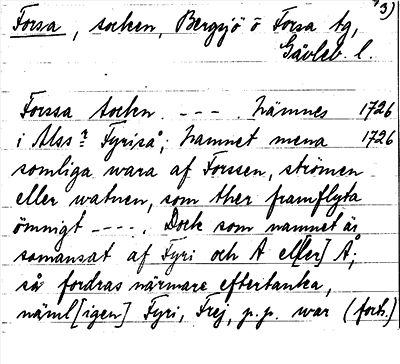 3)
Forsa, socken, Bergsjö o Forsa tg,
Gävleb. l.
Forssa socken. --- . nämnes 1726
i Mss:r Fyriså; namnet mena 1726
somliga wara af Forssen, strömen
eller watnen, som ther framflyta
ömnigt ----. Dock som namnet är
somansat af Fyri och A el[ler] Å;
så fordras närmare eftertanka,
näml[igen] Fyri, Frej, p.p. war (forts.)